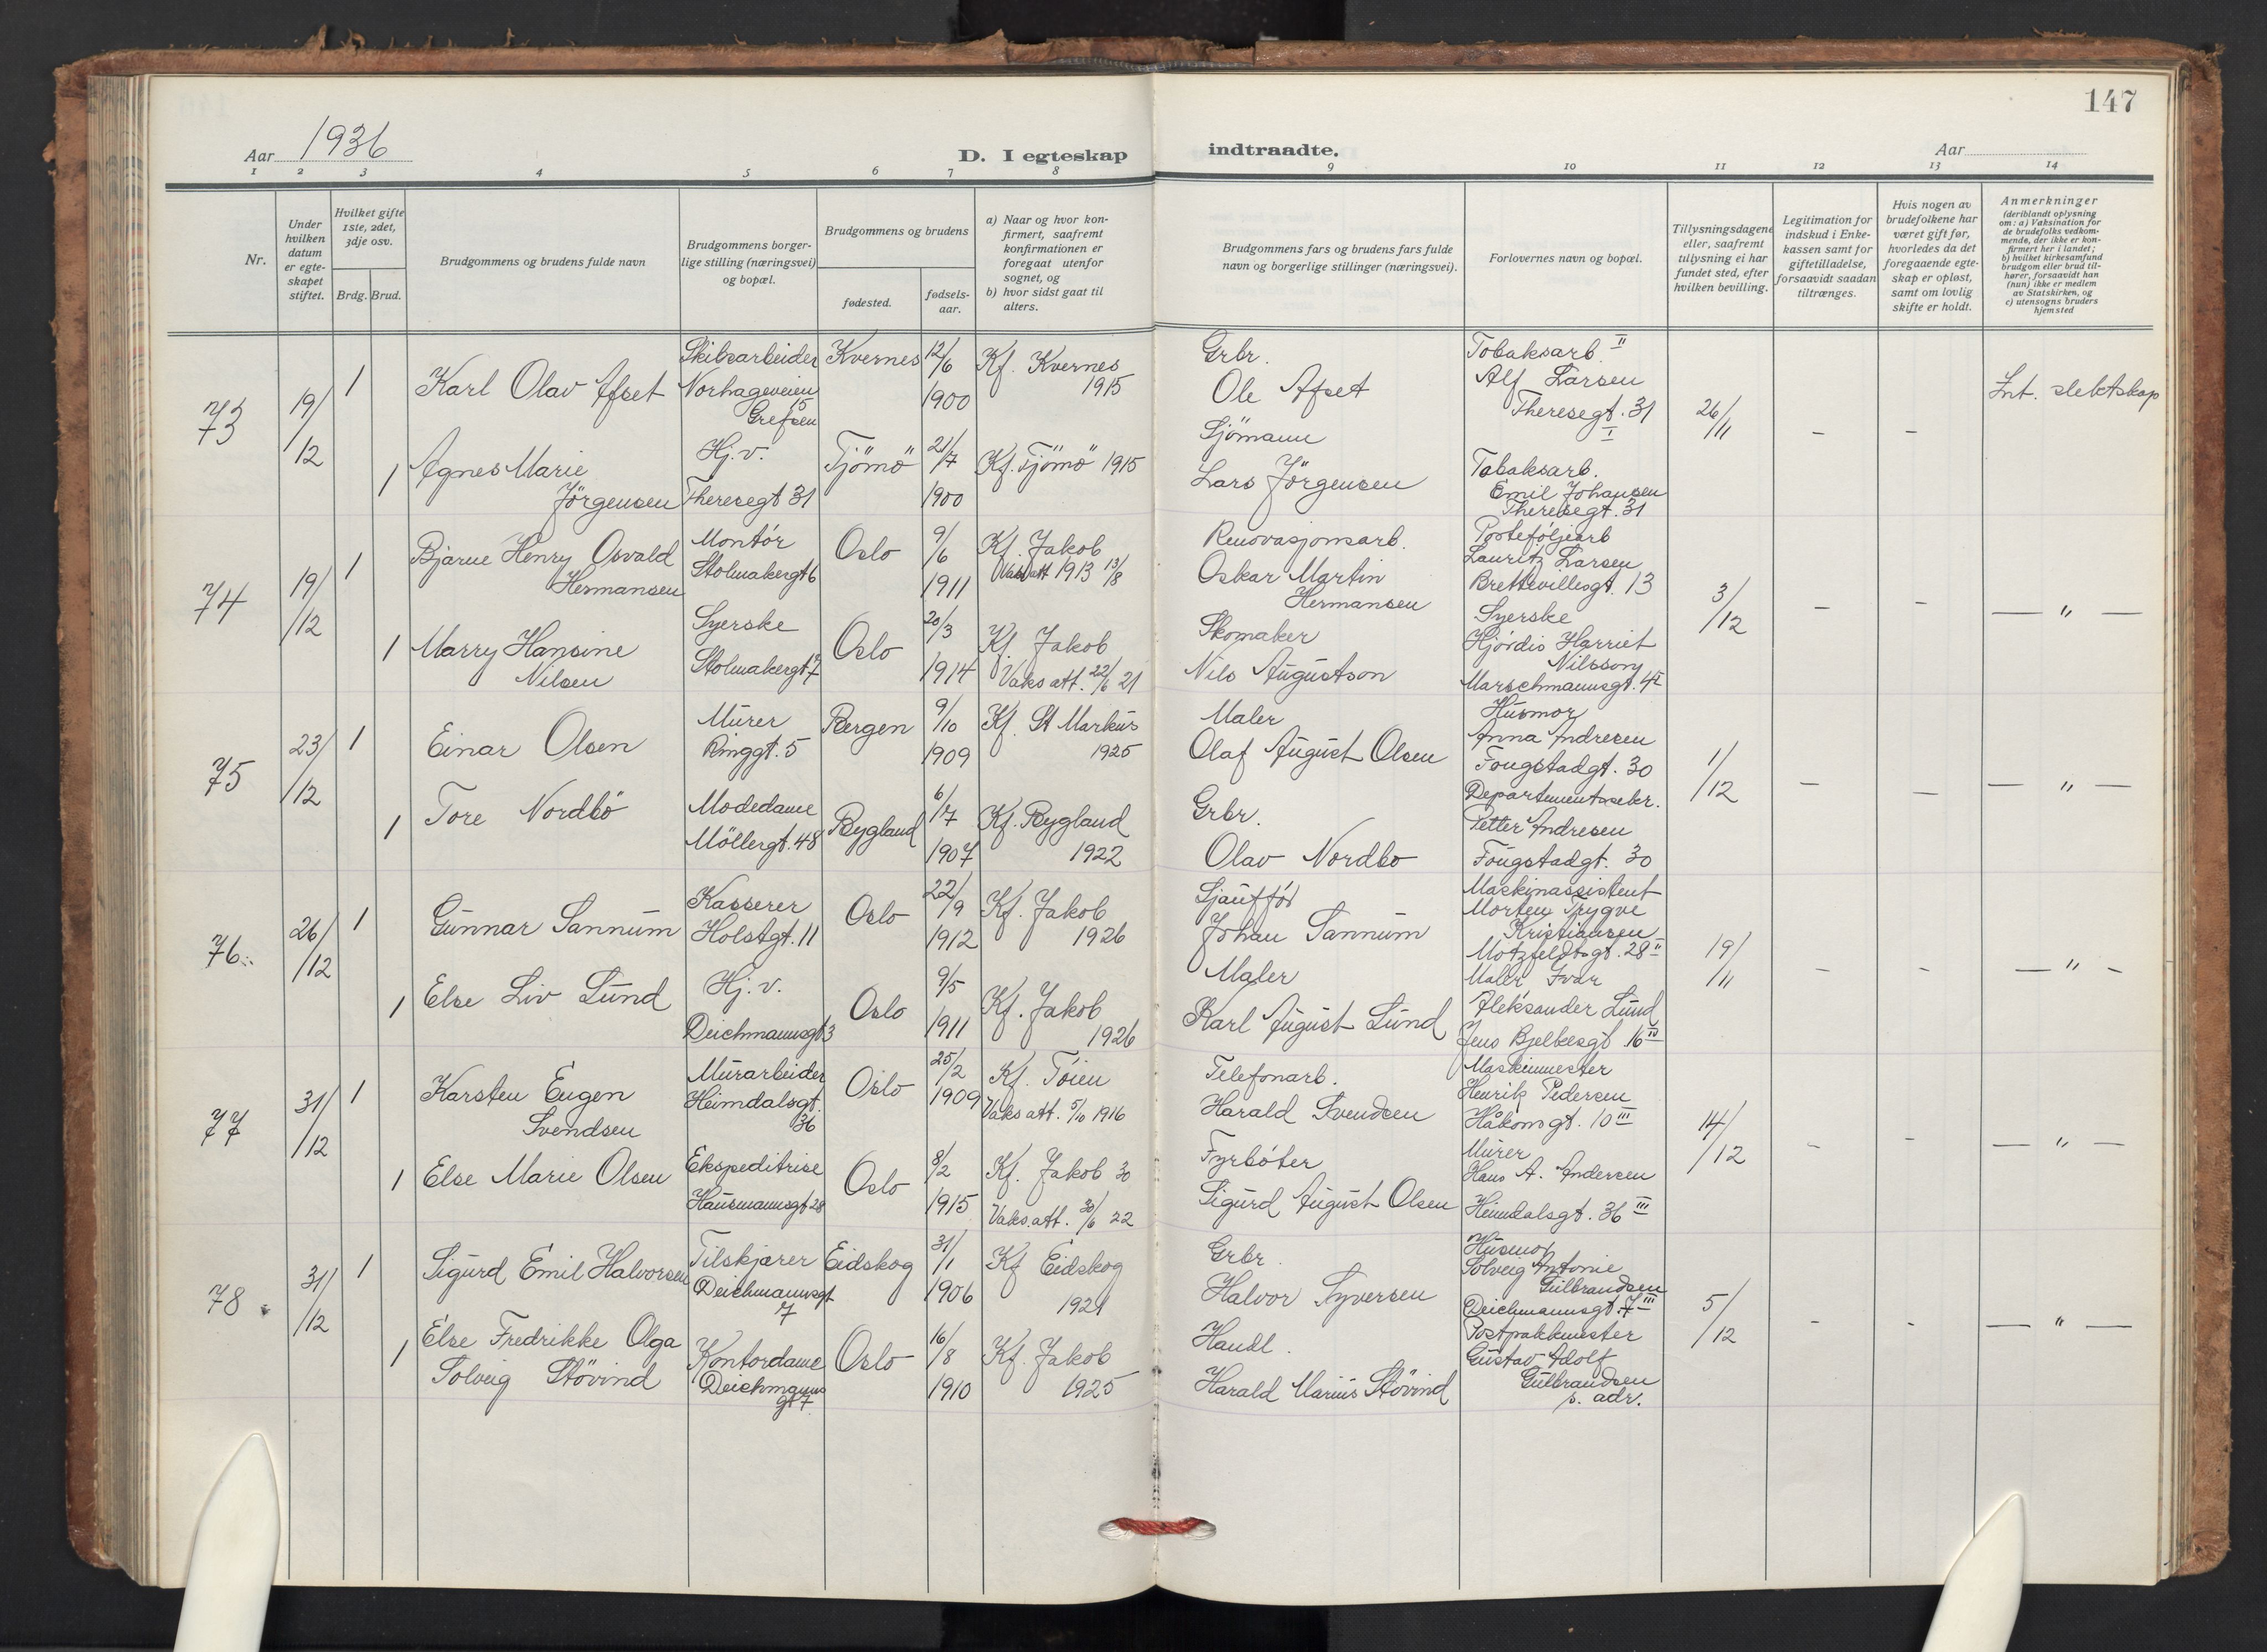 147
Aar 1936
D. I egteskap indtraadte.
Aar
1 2 3 4 5 6 7 8 9 10 11 12 13 14
Nr.
Under
hvilken
datum
er egte-
skapet
stiftet.
Hvilket gifte
1ste, 2det,
3dje osv.
Brdg. Brud.
Brudgommens og brudens fulde navn
Brudgommens borger-
lige stilling (næringsvei)
og bopæl.
Brudgommens og brudens
fødested.
fødsels-
aar.
a) Naar og hvor kon-
firmert, saafremt
konfirmationen er
foregaat utenfor
sognet, og
b) hvor sidst gaat til
alters.
Brudgommens fars og brudens fars fulde
navn og borgerlige stillinger (næringsvei).
Forlovernes navn og bopæl.
Tillysningsdagene
eller, saafremt
tillysning ei har
fundet sted, efter
hvilken bevilling.
Legitimation for
indskud i Enke-
kassen samt for
giftetilladelse,
forsaavidt saadan
tiltrænges.
Hvis nogen av
brudefolkene har
været gift før,
hvorledes da det
foregaaende egte-
skap er opløst,
samt om lovlig
skifte er holdt.
Anmerkninger
(deriblandt oplysning
om: a) Vaksination for
de brudefolks vedkom-
mende, der ikke er kon-
firmert her i landet;
b) hvilket kirkesamfund
brudgom eller brud til-
hører, forsaavidt han
(hun) ikke er medlem
av Statskirken, og
c) utensogns bruders
hjemsted
73
19/12
1
Karl Olav Afset
Skibsarbeider
Norhageveien
15
Grefsen
Kvernes
12/6
1900
Kf. Kvernes
1915
Grbr.
Ole Afset
Tobaksarb. II
Alf Larsen
Theresegt. 31
I
26/11
-
-
Int. slektskap
1
Agnes Marie
Jörgensen
Hj. v.
Theresegt 31
Tjömö
21/7
1900
Kf. Tjömö 1915
Sjömann
Lars Jörgensen
Tobaksarb.
Emil Johansen
Theresegt. 31
74
19/12
1
Bjarne Henry Osvald
Hermansen
Montör
Stolmakergt 6
Oslo
9/6
1911
Kf. Jakob
Vaks att 1913 13/8
Renovasjonsarb.
Oskar Martin
Hermansen
Porteføljearb
Lauritz Larsen
Brettevillesgt. 13
3/12
-
-
— " —
1
Marry Hansine
Nilsen
Syerske
Stolmakergt 17
Oslo
20/3
1914
Kf. Jakob
Vaks att. 22/6 21
Skomaker
Nils Augustson
Syerske
Hjördis Harriet
Nilsson
Marschmannsgt. 4
75
23/12
1
Einar Olsen
Murer
Ringgt. 5
Bergen
9/10
1909
Kf. St Markus
1925
Maler
Olaf August Olsen
Husmor
Anna Andresen
Fougstadgt. 30
1/12
-
-
— " —
1
Tore Nordbö
Modedame
Möllergt. 48
Bygland
6/7
1907
Kf. Bygland
1922
Grbr.
Olav Nordbo
Departementssekr.
Petter Andresen
Fougstadgt. 30
76.
26/12
1
Gunnar Sannum
Kasserer
Holstgt. 11
Oslo
22/9
1912
Kf. Jakob
1926
Sjauffør
Johan Sannum
Maskinassistent
Morten Trygve
Kristiansen
Motzfeldtsgt. 28 II
19/11
-
-
— " -
1
Else Liv Lund
Hj. v.
Deichmannsgt 3
Oslo
9/5
1911
Kf. Jakob
1926
Maler
Karl August Lund
Maler Ivar
Aleksander Lund
Jens Bjelkesgt 16 IV
77
31/12
1
Karsten Eugen
Svendsen
Murarbeider
Heimdalsgt.
36
Oslo
25/2
1909
Kf. Töien
Vaks att. 5/10 1916
Telefonarb.
Harald Svendsen
Maskinmester
Henrik Pedersen
Håkonsgt. 10 III
14/12
-
-
— " —
1
Else Marie Olsen
Ekspeditrise
Hausmannsgt 28
Oslo
8/2
1915
Kf. Jakob 30
Vaks. att. 30/6 22
Fyrböter
Sigurd August Olsen
Murer
Hans A. Andersen
Heimdalsgt. 36 III
78.
31/12
1
Sigurd Emil Halvorsen
Tilskjærer
Deichmannsgt
7
Eidskog
31/1
1906
Kf Eidskog
1921
Grbr.
Halvor Syversen
Husmor
Solveig Antonie
Gulbrandsen
Deichmannsgt. 7 III
5/12
-
-
— " —
1
Else Fredrikke Olga
Solveig Stövind
Kontordame
Deichmanns
gt 7
Oslo
16/8
1910
Kf. Jakob
1925
Handl.
Harald Marius Stövind
Postpakkmester
Gustav Adolf
Gulbrandsen
s. adr.